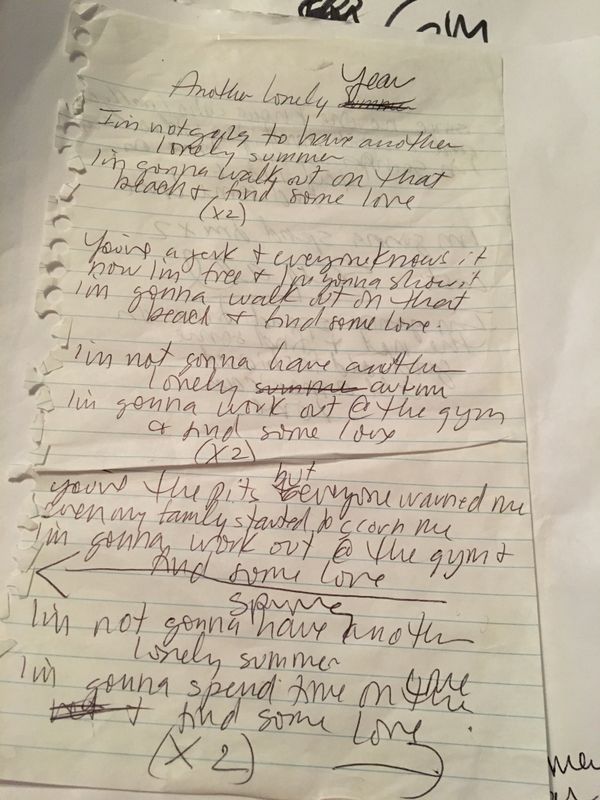 Year
Another lonely summer
I'm not going to have another
lonely summer
I'm gonna walk out on that
beach & find some love
(X2)
You're a jerk & everyone knows it
now I'm free & I'm gonna show it
I'm gonna walk out on that
beach & find some love.
I'm not gonna have another
lonely summer autum
I'm gonna work out @ the gym
& find some love
(X2)
but
you're the pits everyone warned me
even my family started to scorn me
I'm gonna work out @ the gym &
find some love
spring
I'm not gonna have another
lonely summer
I'm gonna spend time on the
& find some love.
(X2)